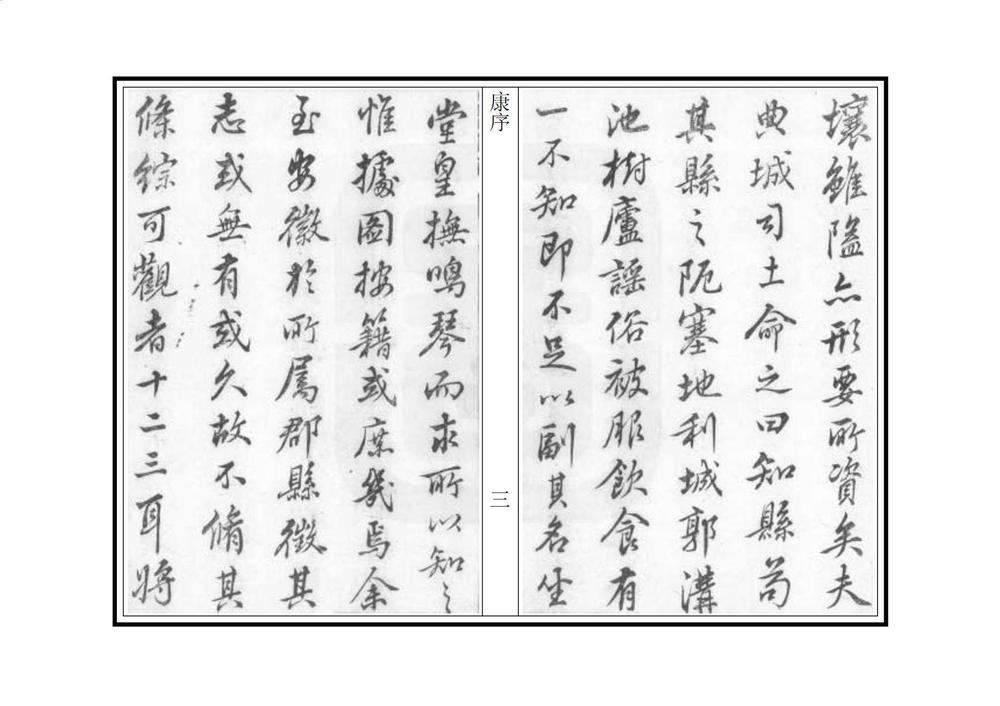 壤雖隘亦形要所資矣夫
典城司土命之曰知縣茍
其縣之阨塞地利城郭溝
池樹廬謡俗被服飲食有
一不知即不足以副其名坐
康序
三
堂皇撫鳴琴而求所以知之
惟據圖按籍或庶幾焉余
至安徽於所屬郡縣徵其
志或無有或久故不脩其
條綜可觀者十二三耳將